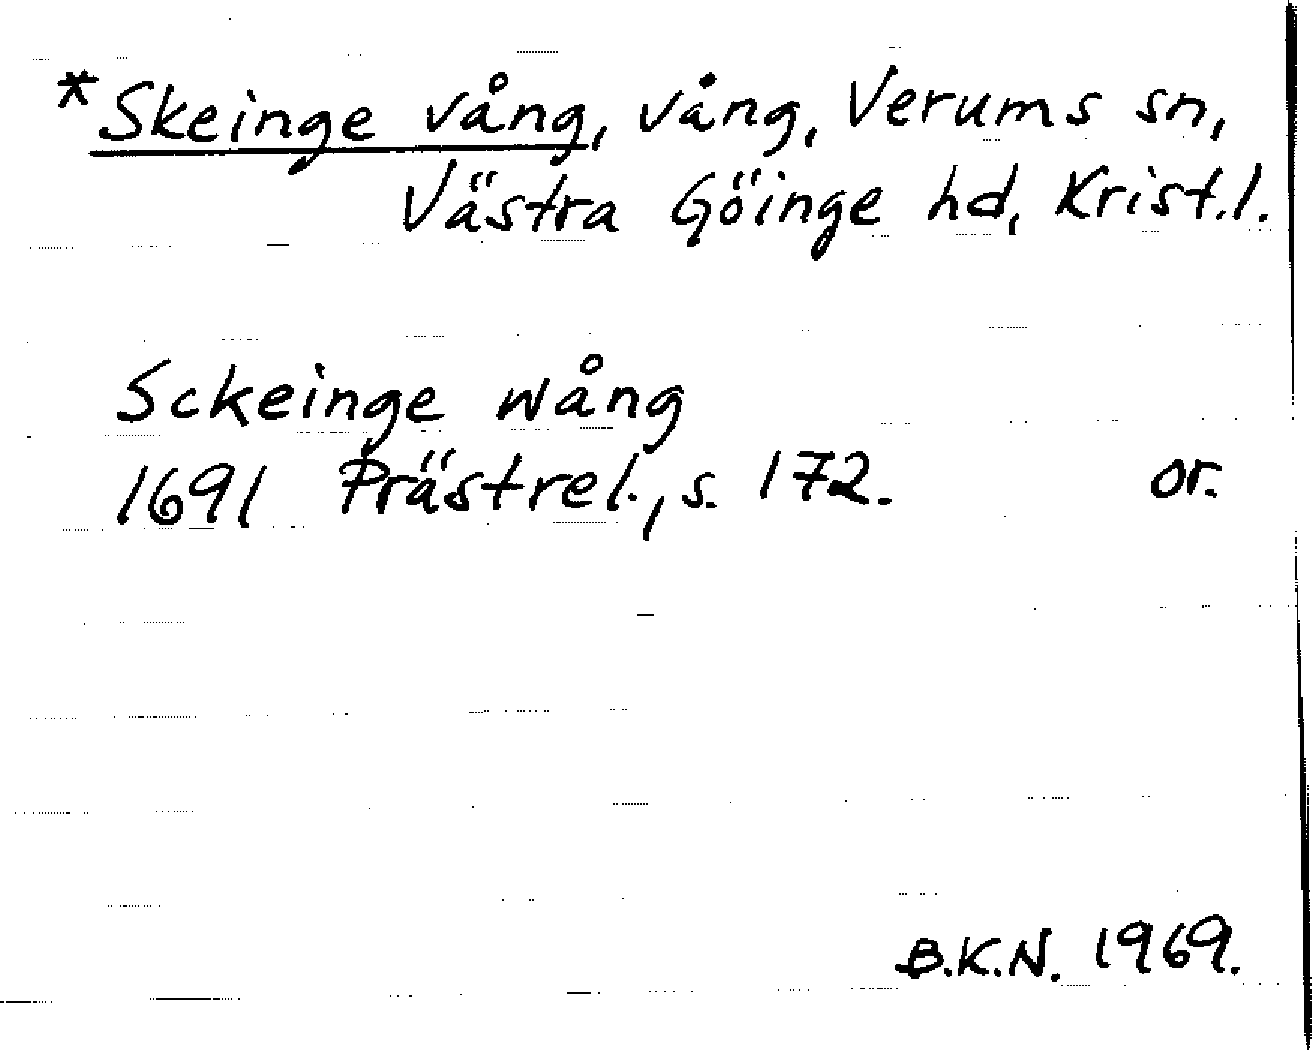 *Skeinge vång, vång, Verums sn,
Västra Göinge hd, Krist.l.
Sckeinge wång
1691 Prästrel., s. 172. or.
B.K.N. 1969.